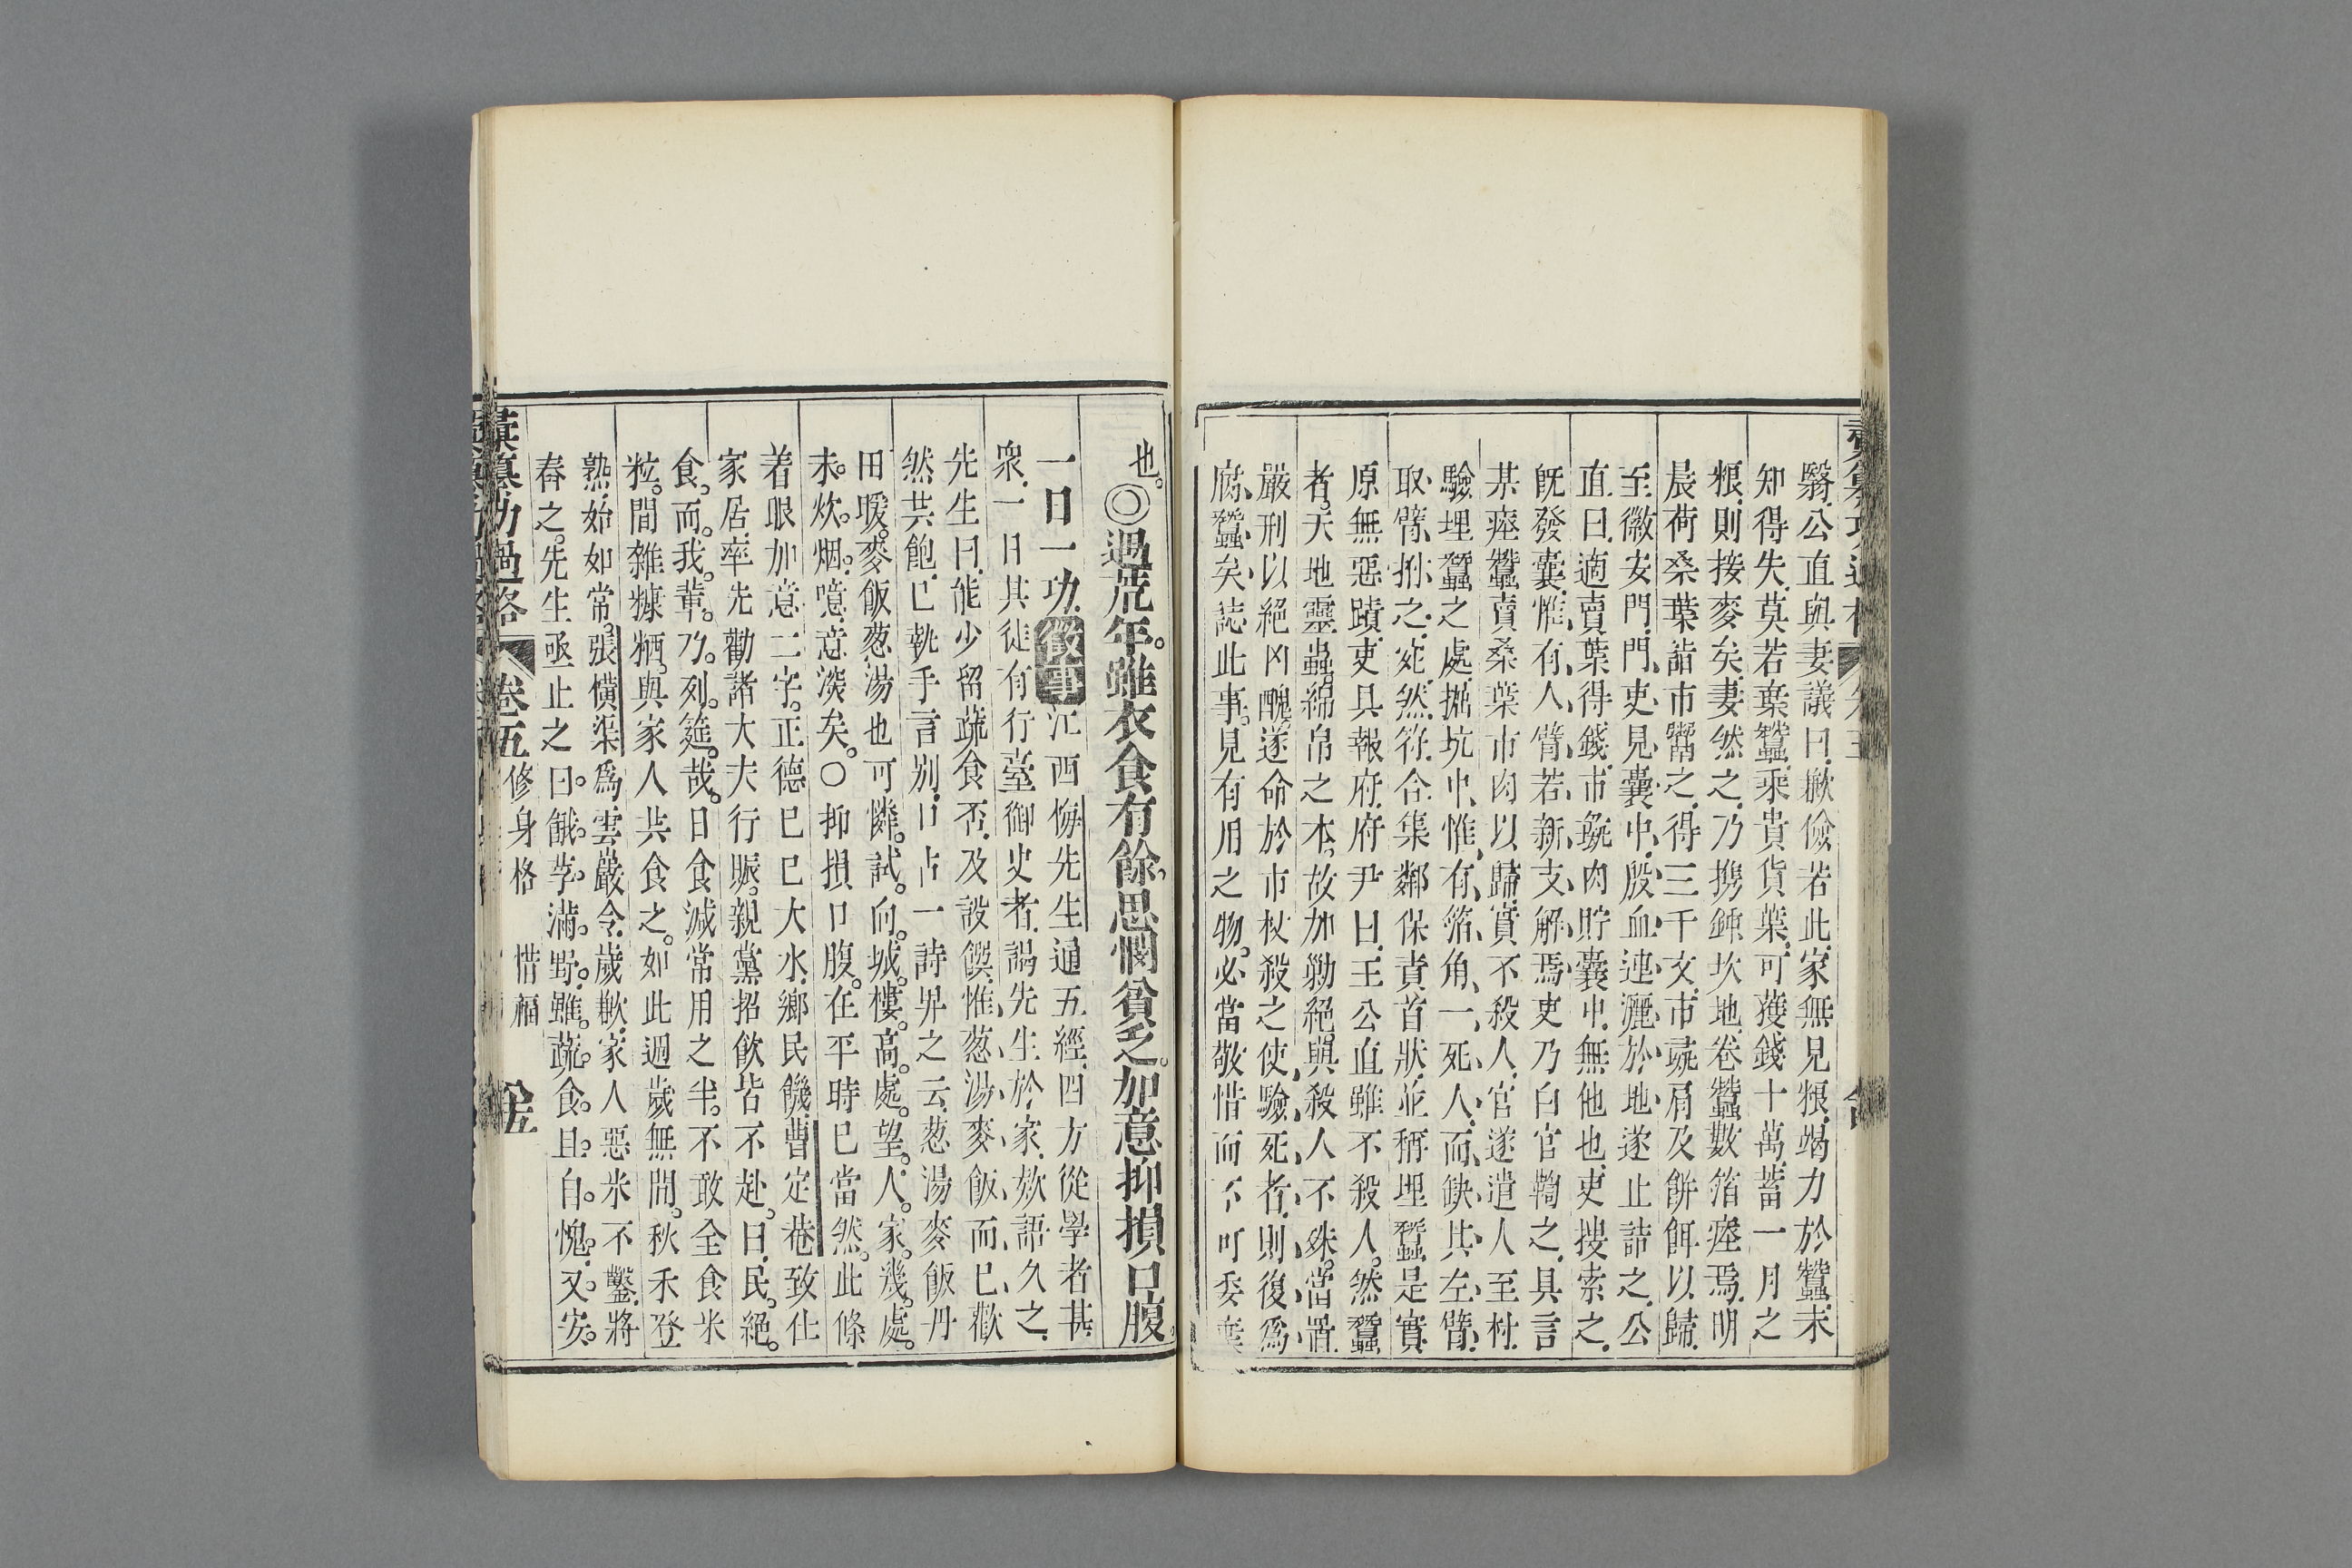 翳公直與妻議曰歉儉若此家無見粮竭力於蠶未
知得失莫若棄蠶乘貴貨葉可獲錢十萬蓄一月之
粮則接麥矣妻然之乃携鍤坎地卷蠶數箔瘞焉明
晨荷桑葉詣市鬻之得三千文市彘肩及餅餌以歸
至徽安門門吏見囊中殷血連灑於地遂止詰之公
直曰適賣葉得錢市彘肉貯囊中無他也吏搜索之
既發囊惟有人臂若新支解焉吏乃白官鞫之具言
某瘞蠶賣桑葉市肉以歸實不殺人官遂遣人至村
驗埋蠶之處掘坑中惟有箔角一死人而缺其左臂
取臂拊之宛然符合集鄰保責首狀並稱埋蠶是實
原無惡蹟吏具報府府尹曰王公直雖不殺人然蠶
者天地靈蟲綿帛之本故加勦絕與殺人不殊當置
嚴刑以絕凶醜遂命於市杖殺之使驗死者則復爲
腐蠶矣誌此事見有用之物必當敬惜而不可委棄
也○遇荒年雖衣食有餘思憫貧乏加意抑損口腹
一日一功徵事江西侮先生通五經四方從學者甚
衆一日其徒有行臺御史者謁先生於家欬語久之
先生曰能少留蔬食否及設饌惟葱湯麥飯而已歡
然共飽已執手言别口占一詩畀之云葱湯麥飯丹
田暖麥飯葱湯也可憐試向城樓高處望人家幾處
未炊烟噫意深矣○抑損口腹在平時已當然此條
着眼加意二字正德己巳大水鄉民饑曹定菴致仕
家居率先勸諸大夫行賑親黨招飲皆不赴曰民絕
食而我輩乃列筵哉日食減常用之半不敢全食米
粒間雜糠粞與家人共食之如此週歲無間秋禾登
熟始如常張横渠爲雲巖令歲歉家人惡米不鑿將
舂之先生亟止之曰餓莩滿野雖蔬食且自愧又安
彙纂功過格 卷五 修身格 惜福